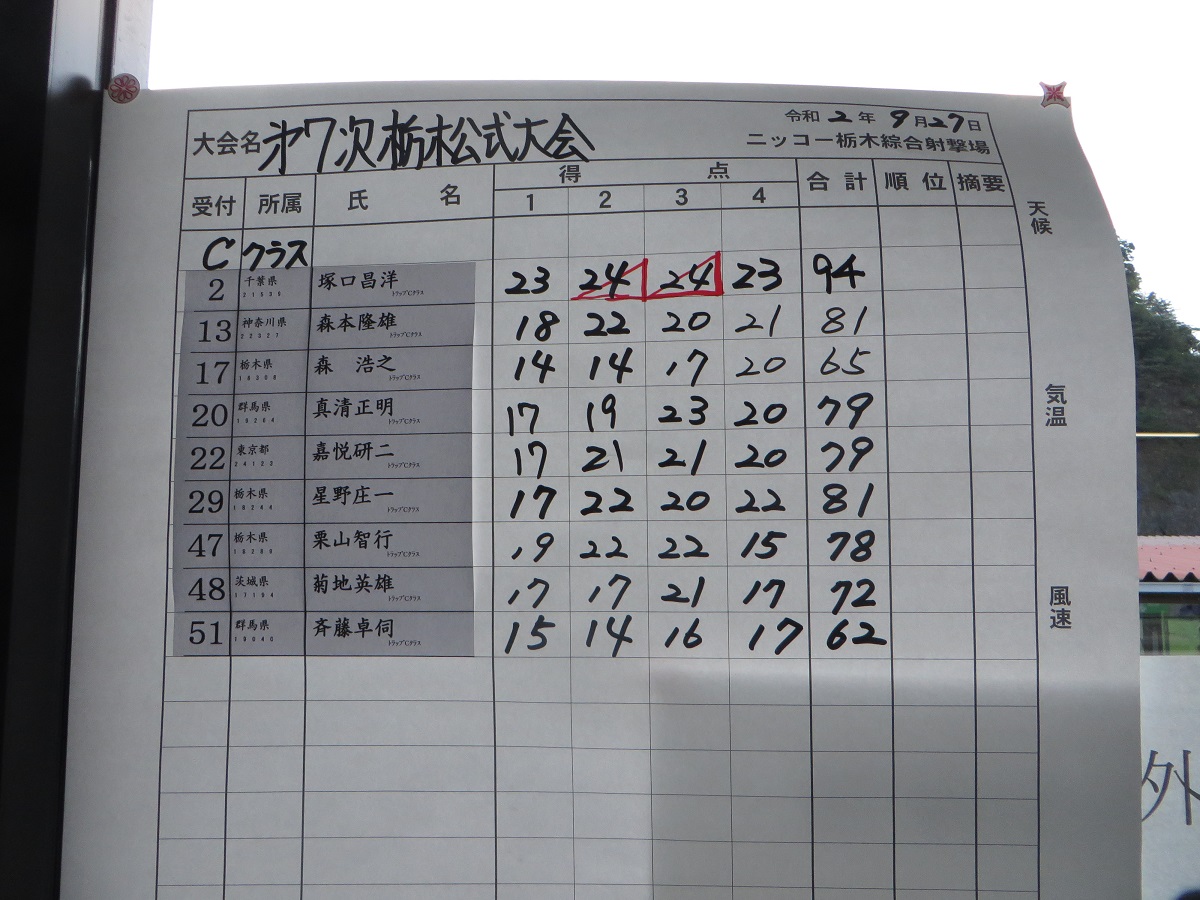 令和 2 年 9 月 27 日
大会名 第7次栃木公式大会 ニッコー栃木綜合射撃場
受付 所属 氏 名 得 点 合計 順位 摘要
1 2 3 4
天候
Cクラス
2 千葉県 塚口昌洋 トラップCクラス 23 24 24 23 94
13 神奈川県 森本隆雄 トラップCクラス 18 22 20 21 81
17 栃木県 森 浩之 トラップCクラス 14 14 17 20 65
気温
20 群馬県 真清正明 トラップCクラス 17 19 23 20 79
22 東京都 嘉悦研二 トラップCクラス 17 21 21 20 79
29 栃木県 星野庄一 トラップCクラス 17 22 20 22 81
47 栃木県 栗山智行 トラップCクラス 19 22 22 15 78
48 茨城県 菊地英雄 トラップCクラス 17 17 21 17 72
風速
51 群馬県 斉藤卓伺 トラップCクラス 15 14 16 17 62
外